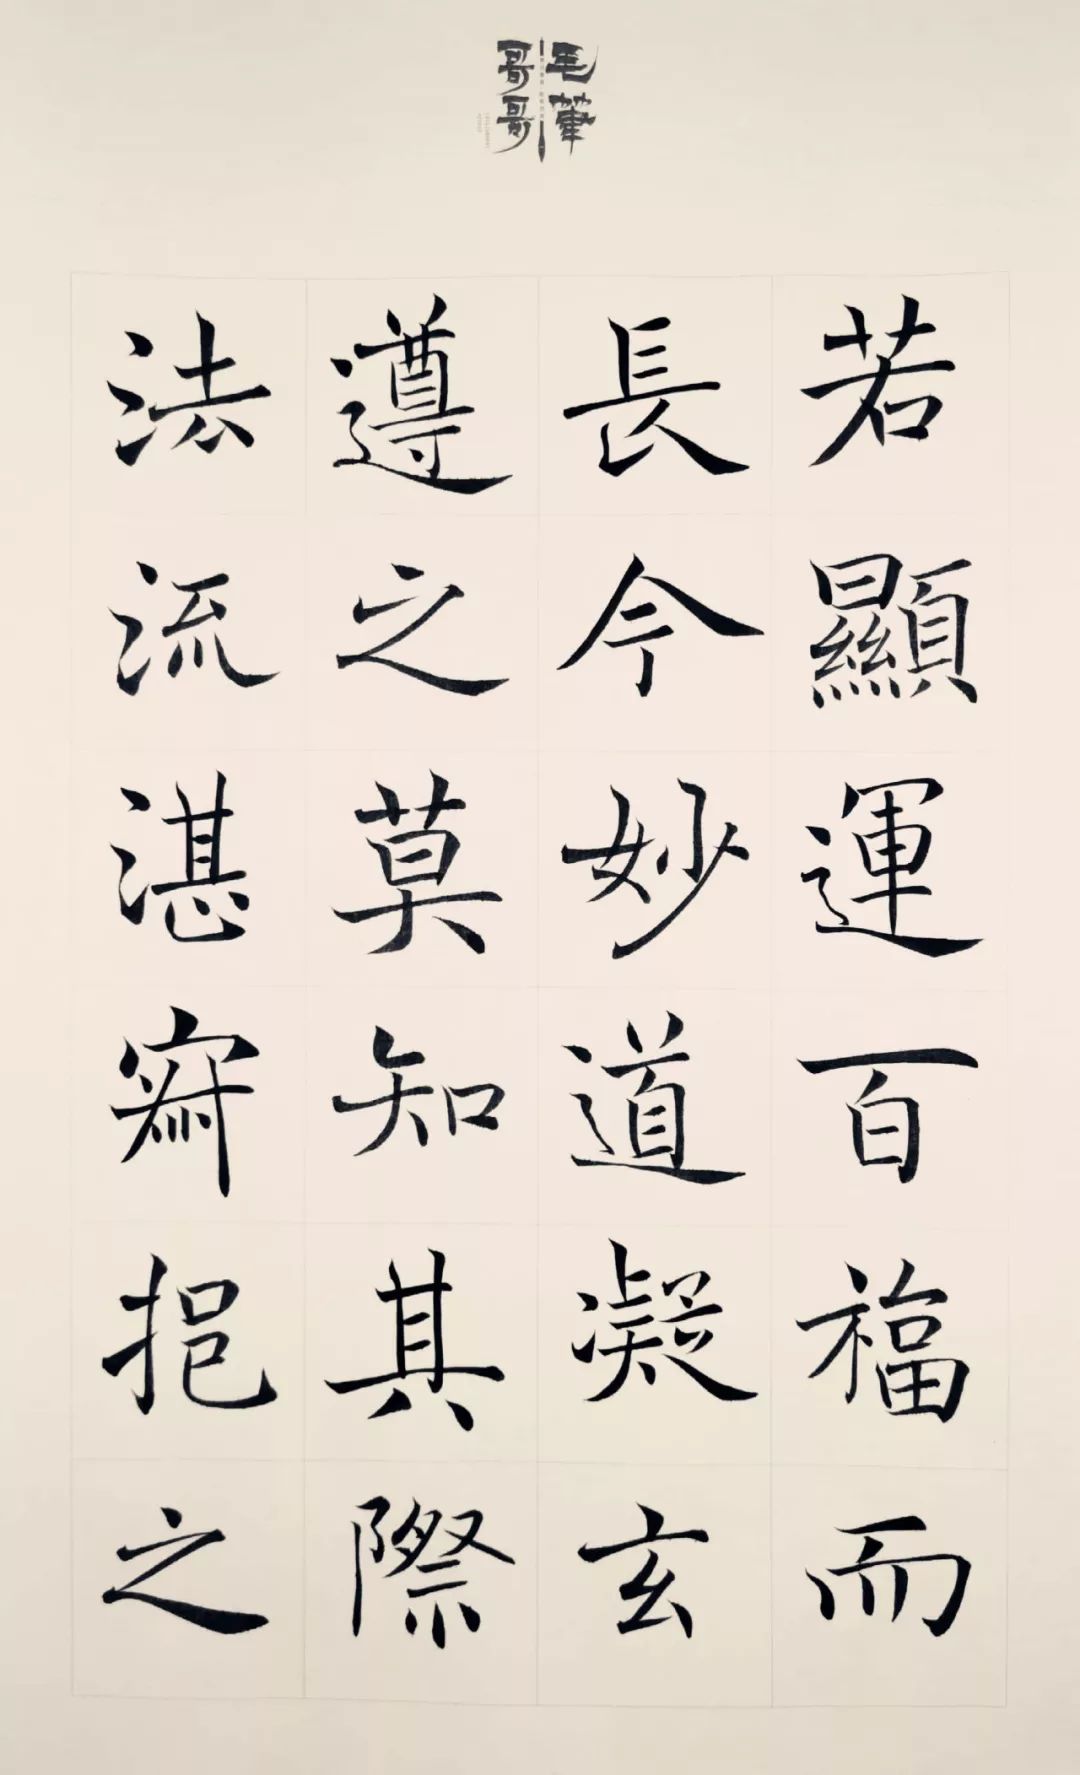 毛筆
哥哥
若顯運百福而
長今妙道凝玄
遵之莫知其際
法流湛寂挹之